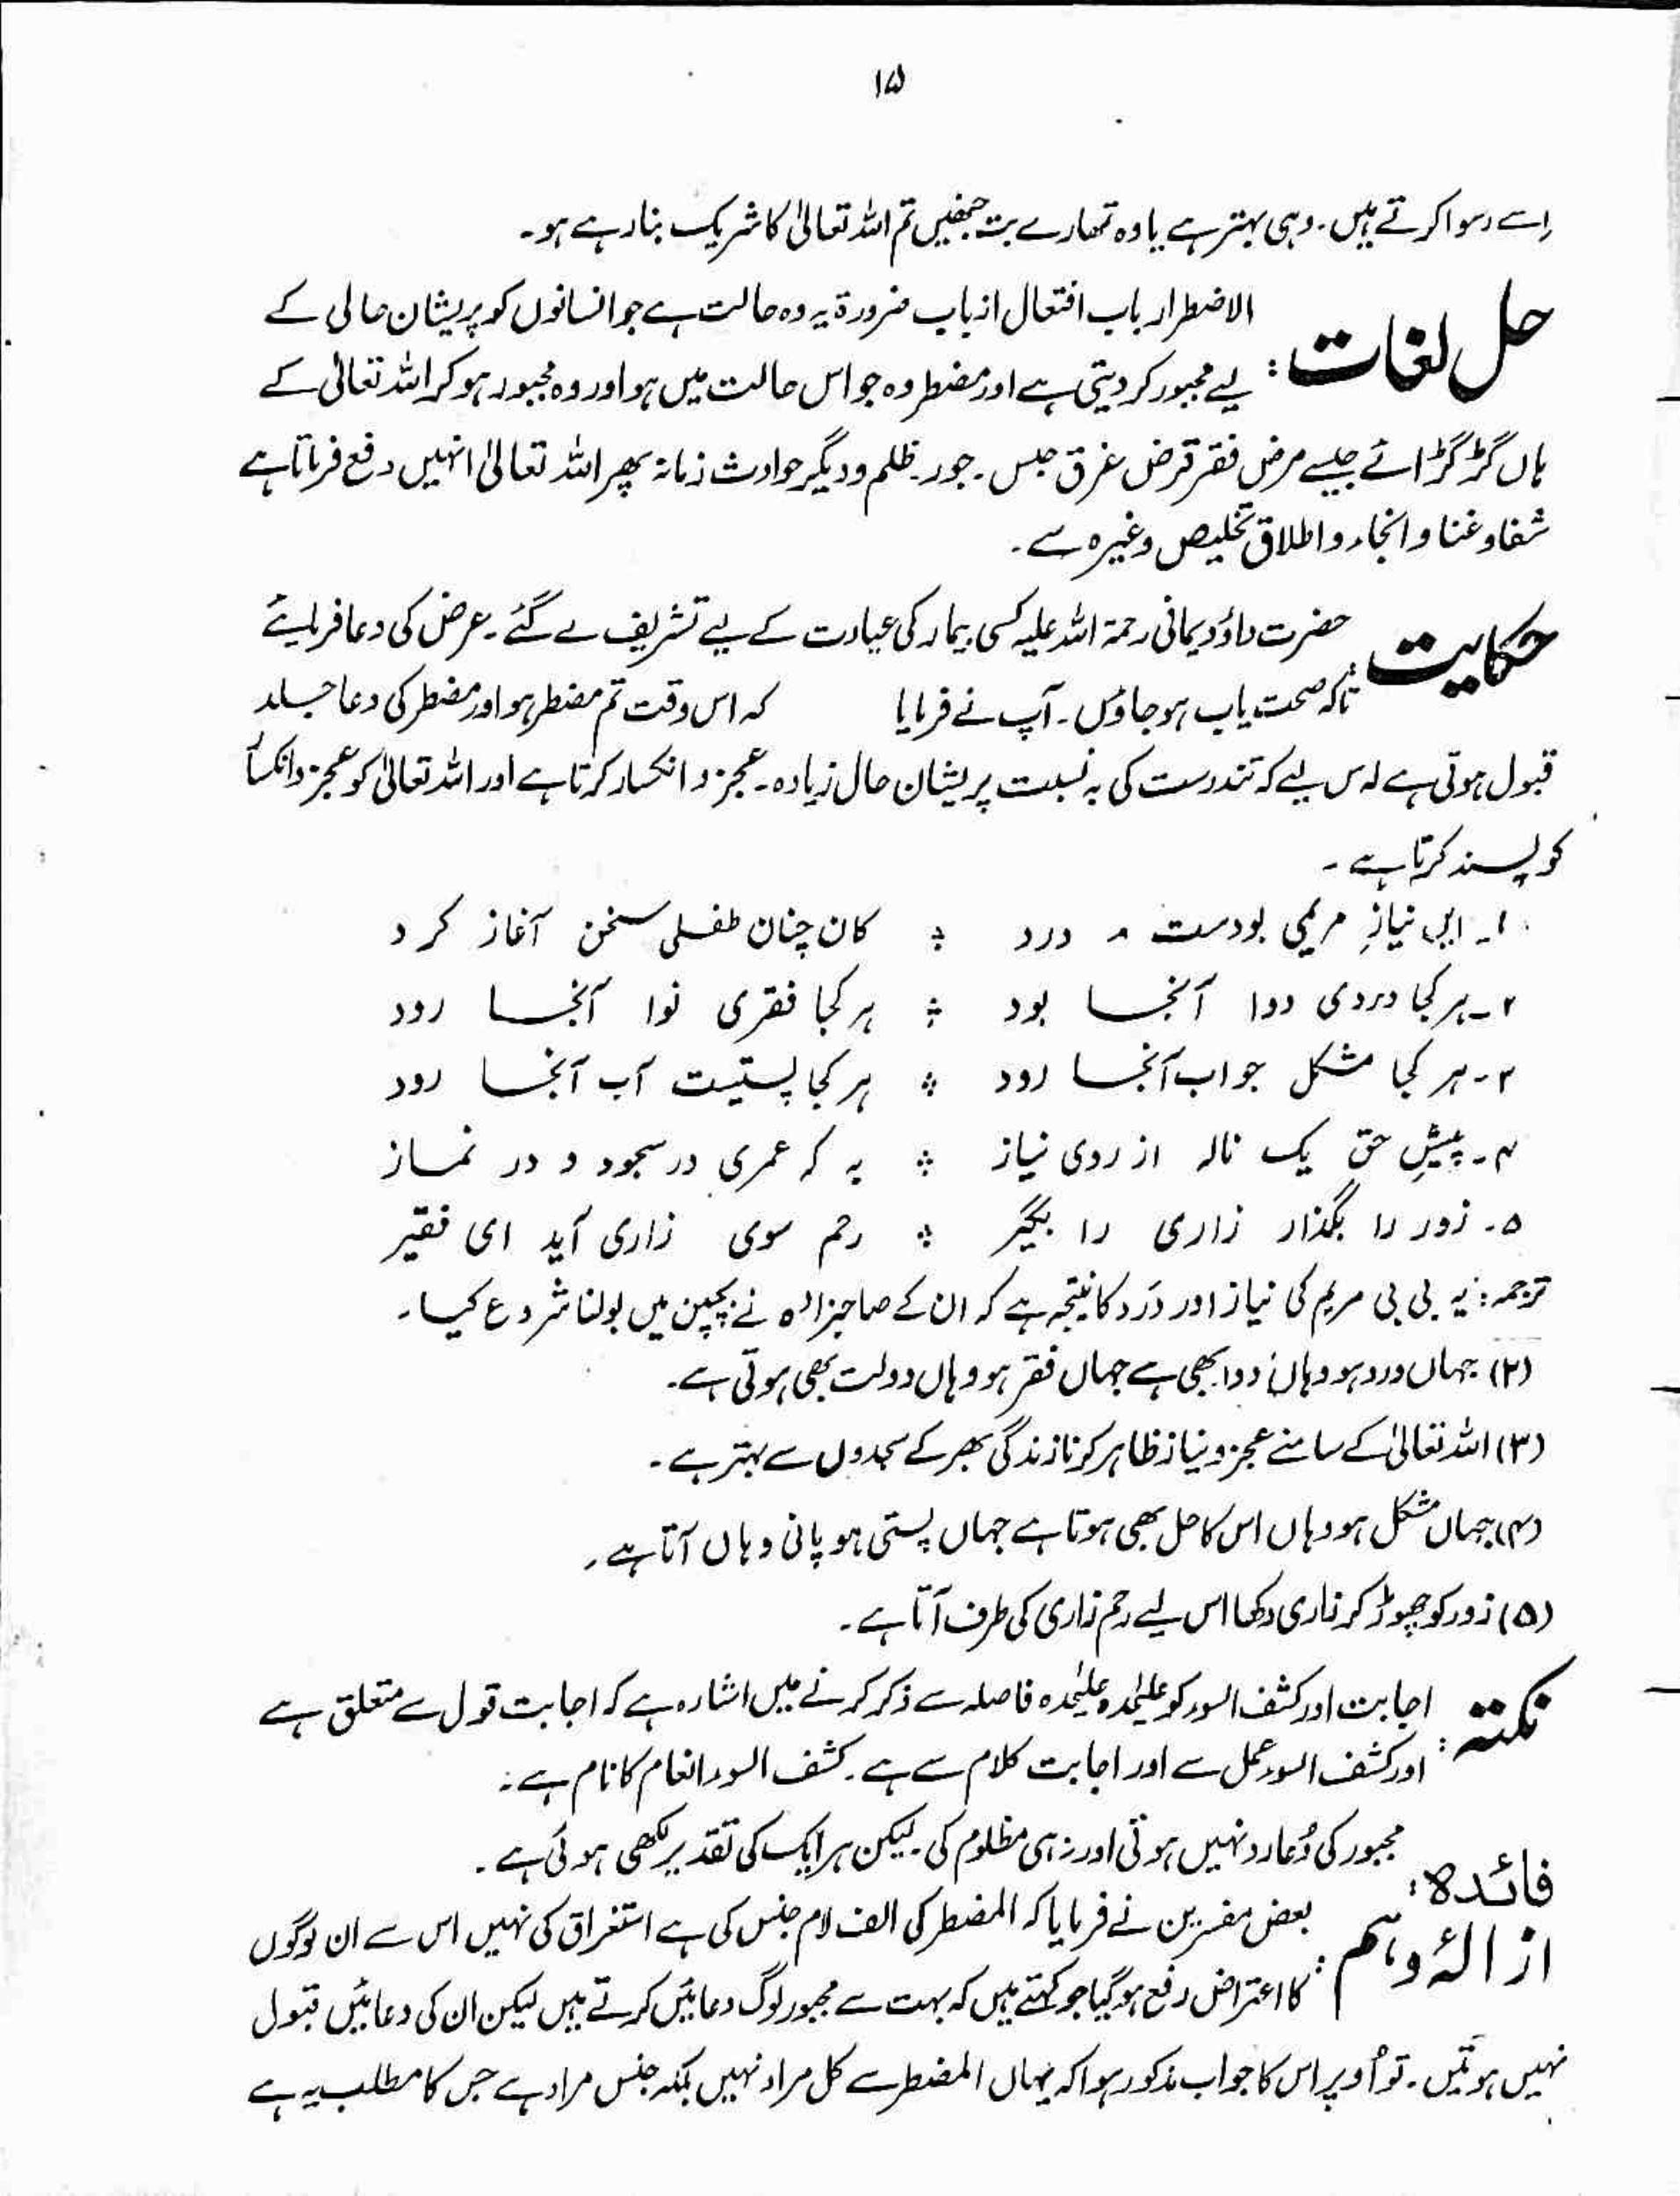 ۱۵
اِسے رسوا کرتے ہیں۔ وہی بہتر ہے یا وہ تمھارے بت جنھیں تم اللہ تعالیٰ کا شریک بنا رہے ہو۔
حل لغات: الاضطرار باب افتعال از باب ضرورۃ یہ وہ حالت ہے جو انسانوں کو پریشان حالی کے
لیے مجبور کر دیتی ہے اور مضطر وہ جو اس حالت میں ہو اور وہ مجبور ہو کر اللہ تعالیٰ کے
ہاں گڑگڑائے جیسے مرض فقر قرض غرق حبس۔ جور۔ ظلم و دیگر حوادث زمانہ پھر اللہ تعالیٰ انہیں دفع فرماتا ہے
شفا و غنا و انجاء و اطلاق تخلیص وغیرہ سے۔
حکایت: حضرت داؤد یمانی رحمۃ اللہ علیہ کسی بیمار کی عیادت کے لیے تشریف لے گئے۔ عرض کی دعا فرمایئے
تاکہ صحت یاب ہو جاؤں۔ آپ نے فرمایا کہ اس وقت تم مضطر ہو اور مضطر کی دعا جلد
قبول ہوتی ہے اس لیے کہ تندرست کی بہ نسبت پریشان حال زیادہ۔ عجز و انکسار کرتا ہے اور اللہ تعالیٰ کو عجز و انکسار
کو پسند کرتا ہے۔
۱۔ ایں نیازِ مریمی بودست و درد ؛ کان چنان طفلی سخن آغاز کرد
۲۔ ہر کجا دردی دوا آنجا بود ؛ ہر کجا فقری نوا آنجا رود
۳۔ ہر کجا مشکل جواب آنجا رود ؛ ہر کجا پستیت آب آنجا رود
۴۔ پیشِ حق یک نالہ از روی نیاز ؛ بہ کہ عمری در سجود و در نماز
۵۔ زور را بگذار زاری را بگیر ؛ رحم سوی زاری آید ای فقیر
ترجمہ: یہ بی بی مریم کی نیاز اور دَرد کا نتیجہ ہے کہ ان کے صاحبزادہ نے بچپن میں بولنا شروع کیا۔
(۲) جہاں درد ہو وہاں دوا بھی ہے جہاں فقر ہو وہاں دولت بھی ہوتی ہے۔
(۳) اللہ تعالیٰ کے سامنے عجز و نیاز ظاہر کرنا زندگی بھر کے سجدوں سے بہتر ہے۔
(۴) جہاں مشکل ہو وہاں اس کا حل بھی ہوتا ہے جہاں پستی ہو پانی وہاں آتا ہے۔
(۵) زور کو چھوڑ کر زاری دکھا اس لیے رحم زاری کی طرف آتا ہے۔
نکتہ: اجابت اور کشف السور کو علیٰحدہ علیٰحدہ فاصلہ سے ذکر کرنے میں اشارہ ہے کہ اجابت قول سے متعلق ہے
اور کشف السور عمل سے اور اجابت کلام سے ہے۔ کشف السور انعام کا نام ہے۔
فائدہ: مجبور کی دُعا رد نہیں ہوتی اور نہ ہی مظلوم کی۔ لیکن ہر ایک کی تقدیر لکھی ہوئی ہے۔
ازالۂ وہم: بعض مفسرین نے فرمایا کہ المضطر کی الف لام جنس کی ہے استغراق کی نہیں اس سے ان لوگوں
کا اعتراض رفع ہو گیا جو کہتے ہیں کہ بہت سے مجبور لوگ دعائیں کرتے ہیں لیکن ان کی دعائیں قبول
نہیں ہوتیں۔ تو اُوپر اس کا جواب مذکور ہوا کہ یہاں المضطر سے کل مراد نہیں بلکہ جنس مراد ہے جس کا مطلب یہ ہے